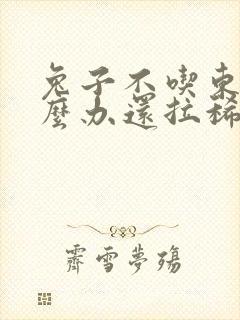 兔子不喫東
麼办還拉稀
霽雪夢殤